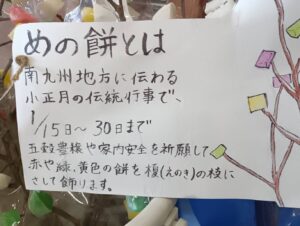 めの餅とは
南九州地方に伝わる
小正月の伝統行事で、
1/15日〜30日まで
五穀豊穣や家内安全を祈願して
赤や緑、黄色の餅を榎(えのき)の枝に
さして飾ります。